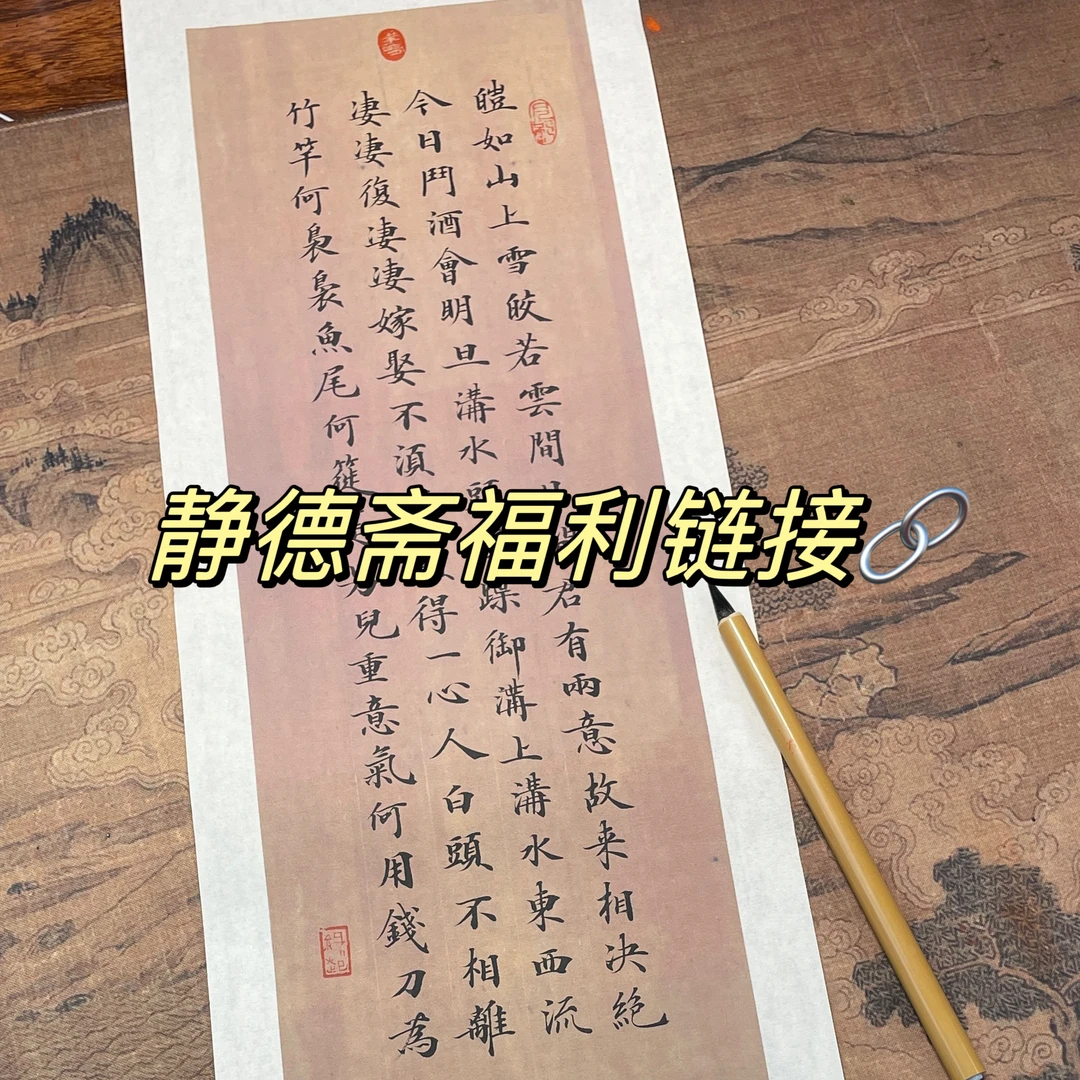 静德斋福利链接
皚如山上雪皎若雲間君有兩意故来相决絶
今日鬥酒會明旦溝水頭蹀御溝上溝水東西流
淒淒復淒淒嫁娶不湏得一心人白頭不相離
竹竿何裊裊魚尾何簁男兒重意氣何用錢刀為